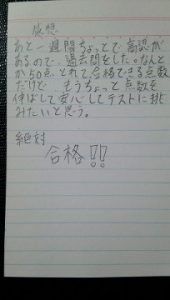 感想
あと一週間ちょっとで高認が
あるので、過去問をした。なんと
か50点とれて合格できる点数
だけど、もうちょっと点数を
伸ばして安心してテストに挑
みたいと思う。
絶対
合格!!